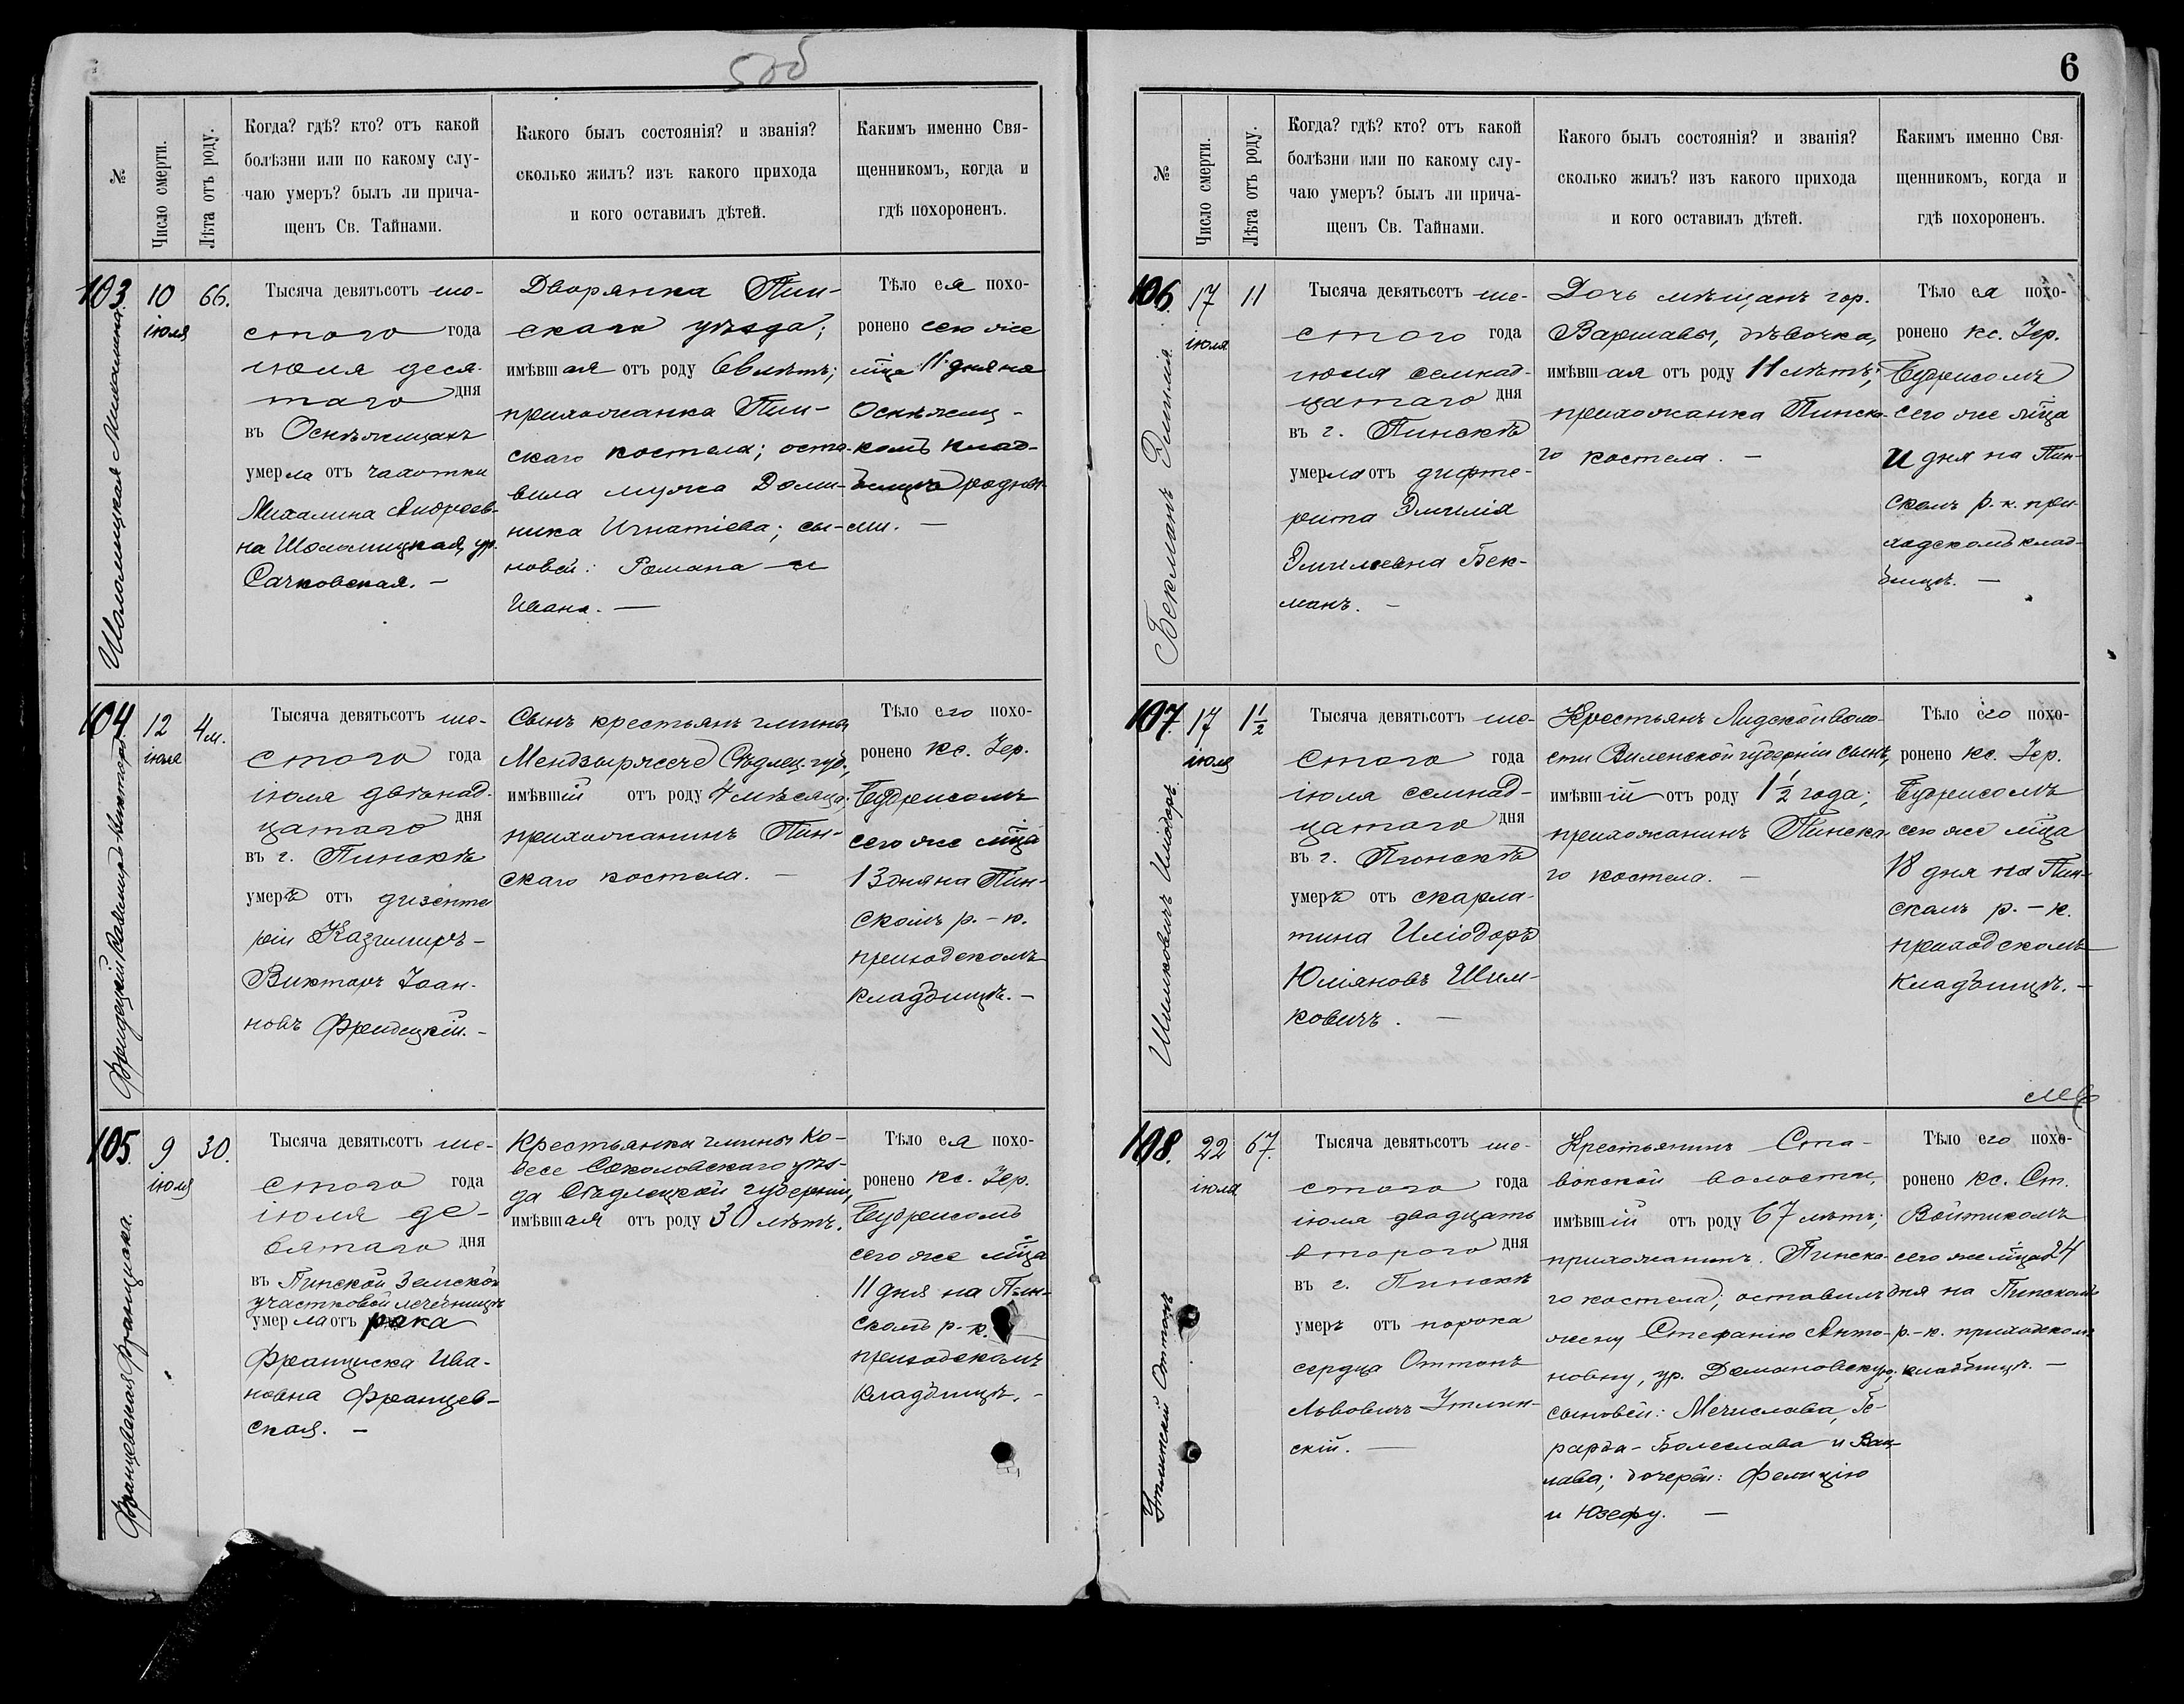 505
№
Число смерти.
Лѣта отъ роду.
Когда? гдѣ? кто? отъ какой
болѣзни или по какому слу-
чаю умеръ? былъ ли прича-
щенъ Св. Тайнами.
Какого былъ состоянія? и званія?
сколько жилъ? изъ какого прихода
и кого оставилъ дѣтей.
Какимъ именно Свя-
щенникомъ, когда и
гдѣ похороненъ.
103.
10
іюля
66.
Тысяча девятьсотъ ше-
стого года
іюля деся-
таго дня
въ Оснѣжицахъ
умерла отъ чахотки
Михалина Андреев-
на Шоломицкая, ур.
Сачковская. —
Дворянка Пин-
скаго уѣзда;
имѣвшая отъ роду 66 лѣтъ;
прихожанка Пин-
скаго костела; оста-
вила мужа Доми-
ника Игнатіева; сы-
новей: Романа и
Ивана. —
Тѣло ея похо-
ронено сего же
мѣца 11 дня на
Оснѣжиц-
комъ клад-
бищѣ родны-
ми. —
104.
12
іюля
4 м.
Фридецкій Казимиръ-Викторъ.
Тысяча девятьсотъ ше-
стого года
іюля двѣнад-
цатаго дня
въ г. Пинскѣ
умеръ отъ дизенте
ріи Казимиръ-
Викторъ Іоан-
новъ Фридецкій. -
Сынъ крестьянъ гмины
Мендзыржече Сѣдлец. губ.,
имѣвшій отъ роду 4 мѣсяца;
прихожанинъ Пин-
скаго костела. —
Тѣло его похо-
ронено кс. Іер.
Будрисомъ
сего же мѣца
13 дня на Пин-
скомъ р.-к.
приходскомъ
кладбищѣ. -
105.
9
іюля
30.
Францевская Франциска.
Тысяча девятьсотъ ше-
стого года
іюля де-
вятаго дня
въ Пинской Земской
участковой лечебницѣ
умерла отъ рака
Франциска Ива-
новна Францев-
ская. -
Крестьянка гмины Ко-
весе Соколовскаго уѣз-
да Сѣдлецкой губерніи,
имѣвшая отъ роду 30 лѣтъ.
Тѣло ея похо-
ронено кс. Іер.
Будрисомъ
сего же мѣца
11 дня на Пин-
скомъ р.-к.
приходскомъ
кладбищѣ. -
6
№
Число смерти.
Лѣта отъ роду.
Когда? гдѣ? кто? отъ какой
болѣзни или по какому слу-
чаю умеръ? былъ ли прича-
щенъ Св. Тайнами.
Какого былъ состоянія? и званія?
сколько жилъ? изъ какого прихода
и кого оставилъ дѣтей.
Какимъ именно Свя-
щенникомъ, когда и
гдѣ похороненъ.
106.
17
іюля
11
Бекманъ Эмилія.
Тысяча девятьсотъ ше-
стого года
іюля семнад-
цатаго дня
въ г. Пинскѣ
умерла отъ дифте-
рита Эмилія
Эмильевна Бек-
манъ. -
Дочь мѣщанъ гор.
Варшавы, дѣвочка,
имѣвшая отъ роду 11 лѣтъ;
прихожанка Пинска-
го костела. —
Тѣло ея похо-
ронено кс. Іер.
Будрисомъ
сего же мѣца
дня на Пин-
скомъ р. к. при-
ходскомъ клад-
бищѣ. —
107.
17
іюля
1 1/2
Шимковичъ Иліодоръ.
Тысяча девятьсотъ ше-
стого года
іюля семнад-
цатаго дня
въ г. Пинскѣ
умеръ отъ скарла-
тина Иліодоръ
Юліановъ Шим-
ковичъ. —
Крестьянъ Лидской воло-
сти Виленской губерніи сынъ,
имѣвшій отъ роду 1 1/2 года;
прихожанинъ Пинска-
го костела. —
Тѣло его похо-
ронено кс. Іер.
Будрисомъ
сего же мѣца
18 дня на Пин-
скомъ р.-к.
приходскомъ
кладбищѣ. -
108.
22
іюля
67.
Тысяча девятьсотъ ше-
стого года
іюля двадцать
второго дня
въ г. Пинскѣ
умеръ отъ порока
сердца Оттонъ
Львовичъ Утлин-
скій. —
Крестьянинъ Ста-
вокской волости,
имѣвшій отъ роду 67 лѣтъ;
прихожанинъ Пинска-
го костела; оставилъ
жену Стефанію Анто-
новну, ур. Домановскую;
сыновей: Мечислава, Ге-
рарда-Болеслава и Вац-
лава; дочерей: Фелицію
и Юзефу. —
Тѣло его похо-
ронено кс. Ст.
Войтикомъ
сего же мѣца 24
дня на Пинскомъ
р.-к. приходскомъ
кладбищѣ. —